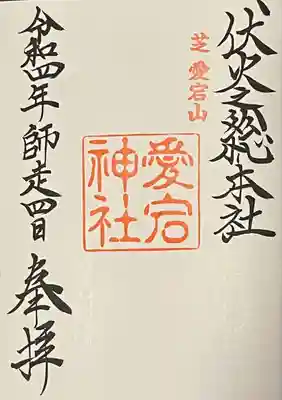 伏火之総本社
芝愛宕山
愛宕
神社
奉拝
令和四年師走四日